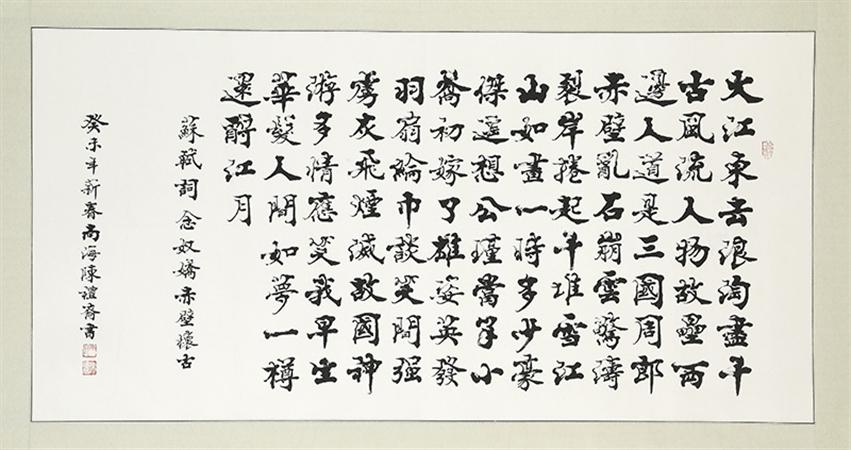 大江東去浪淘盡千
古風流人物故壘西
邊人道是三國周郎
赤壁亂石崩雲驚濤
裂岸捲起千堆雪江
山如畫一時多少豪
傑遥想公瑾當年小
喬初嫁了雄姿英發
羽扇綸巾談笑間强
虜灰飛煙滅故國神
游多情應笑我早生
華髮人間如夢一樽
還酹江月
蘇軾詞念奴嬌赤壁懷古
癸未年新春尚海陳禮齋書